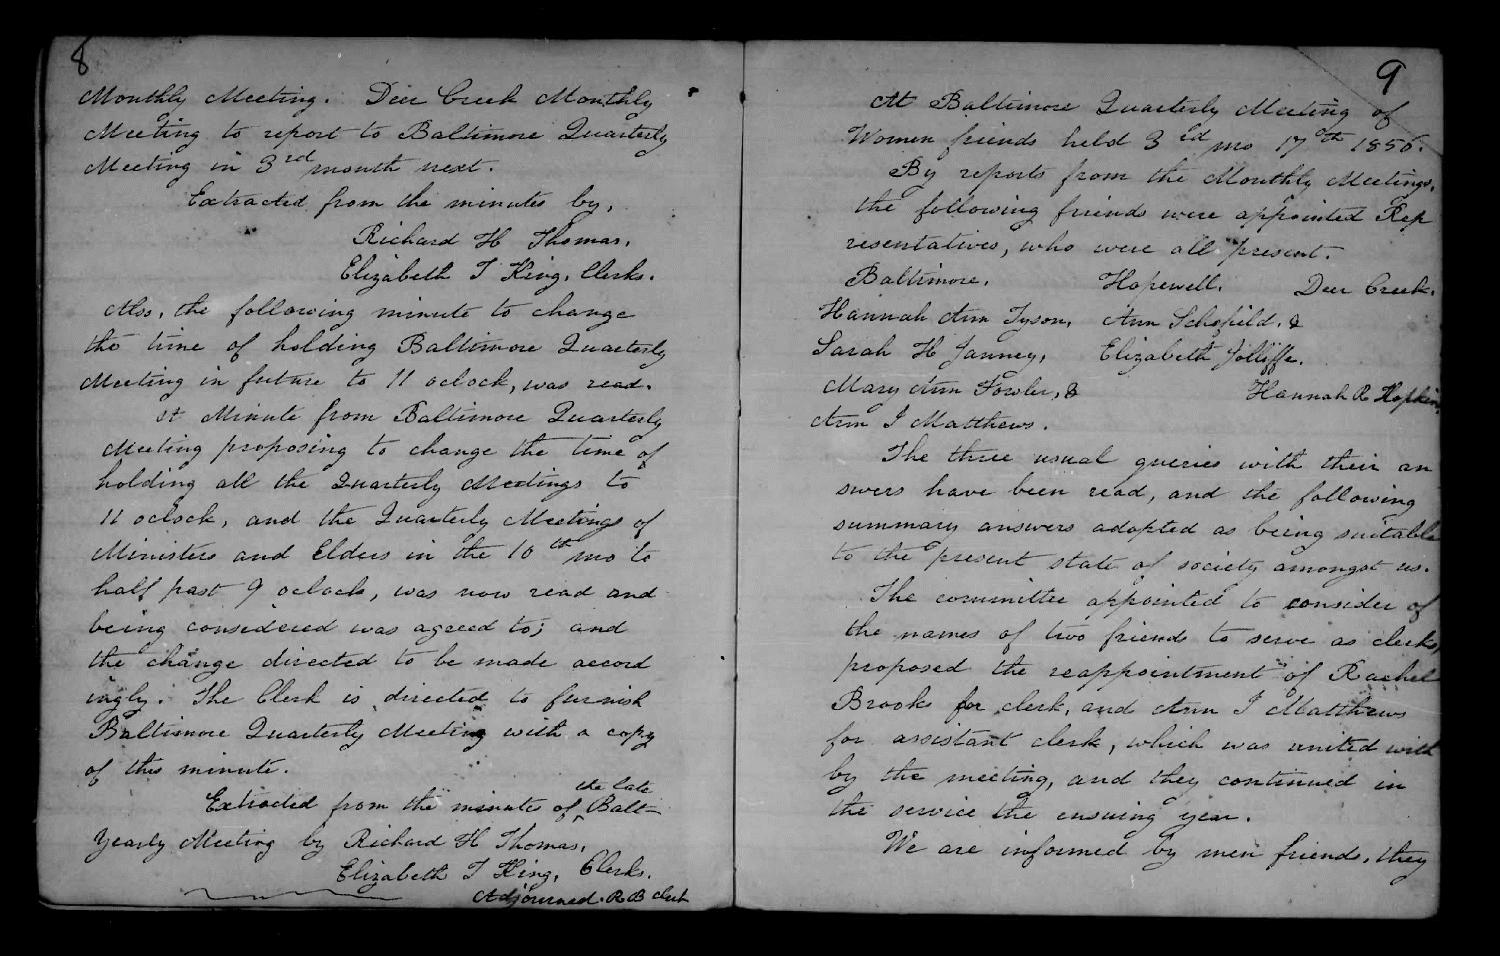 8
Monthly Meeting. Deer Creek Monthly
Meeting to report to Baltimore Quarterly
Meeting in 3rd month next.
Extracted from the minutes by,
Richard H Thomas,
Elizabeth T King, Clerks.
Also, the following minute to change
the time of holding Baltimore Quarterly
Meeting in future to 11 oclock, was read.
A Minute from Baltimore Quarterly
Meeting proposing to change the time of
holding all the Quarterly Meetings to
11 oclock, and the Quarterly Meetings of
Ministers and Elders in the 10th mo to
half past 9 oclock, was now read and
being considered was agreed to; and
the change directed to be made accord
ingly. The Clerk is directed to furnish
Baltimore Quarterly Meeting with a copy
of this minute.
the late
Extracted from the minutes of Balt
Yearly Meeting by Richard H Thomas,
Elizabeth T King, Clerks.
Adjourned. R B clerk
9
At Baltimore Quarterly Meeting of
Women friends held 3rd mo 17th 1856.
By reports from the Monthly Meetings,
the following friends were appointed Rep
resentatives, who were all present.
Baltimore, Hopewell. Deer Creek.
Hannah Ann Tyson, Ann Schofield, &
Sarah H Janney, Elizabeth Jolliffe.
Mary Ann Fowler, & Hannah R Hopkins
Ann J Matthews.
The three usual queries with their an
swers have been read, and the following
summary answers adopted as being suitable
to the present state of society amongst us.
The committee appointed to consider of
the names of two friends to serve as clerks,
proposed the reappointment of Rachel
Brooks for clerk, and Ann J Matthews
for assistant clerk, which was united with
by the meeting, and they continued in
the service the ensuing year.
We are informed by men friends, they